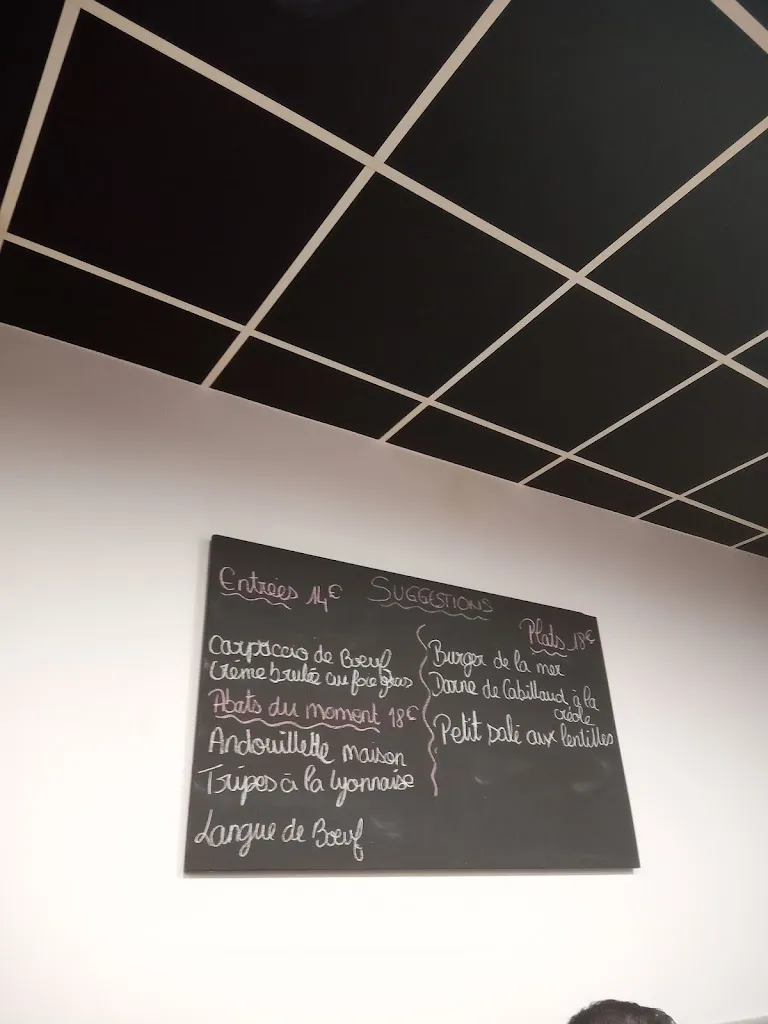 SUGGESTIONS
Entrées 14€
Carpaccio de Boeuf
Crème brulée au foie gras
Abats du moment 18€
Andouillette maison
Tripes à la lyonnaise
Langue de Boeuf
Plats 18€
Burger de la mer
Darne de Cabillaud à la
créole
Petit salé aux lentilles